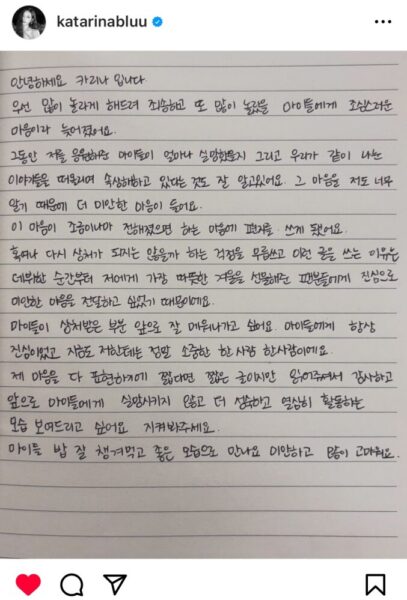 katarinabluu
안녕하세요 카리나 입니다
우선 많이 놀라게 해드려 죄송하고 또 많이 놀랐을 마이들에게 조심스러운
마음이라 늦어졌어요.
그동안 저를 응원해준 마이들이 얼마나 실망했을지 그리고 우리가 같이 나눈
이야기들을 떠올리며 속상해하고 있다는 것도 잘 알고있어요. 그 마음을 저도 너무
알기 때문에 더 미안한 마음이 들어요.
이 마음이 조금이나마 전해졌으면 하는 마음에 편지를 쓰게 됐어요.
혹여나 다시 상처가 되지는 않을까 하는 걱정을 무릅쓰고 이런 글을 쓰는 이유은
데뷔한 순간부터 저에게 가장 따뜻한 겨울을 선물해준 팬분들에게 진심으로
미안한 마음을 전달하고 싶었기 때문이에요.
마이들이 상처받은 부분 앞으로 잘 메워나가고 싶어요. 마이들에게 항상
진심이었고 지금도 저한테는 정말 소중한 한사람 한사람이에요.
제 마음을 다 표현하기에 짧다면 짧은 글이지만 읽어주셔서 감사하고
앞으로 마이들에게 실망시키지 않고 더 성숙하고 열심히 활동하는
모습 보여드리고 싶어요 지켜봐주세요.
마이들 밥 잘 챙겨먹고 좋은 모습으로 만나요 미안하고 많이 고마워요.